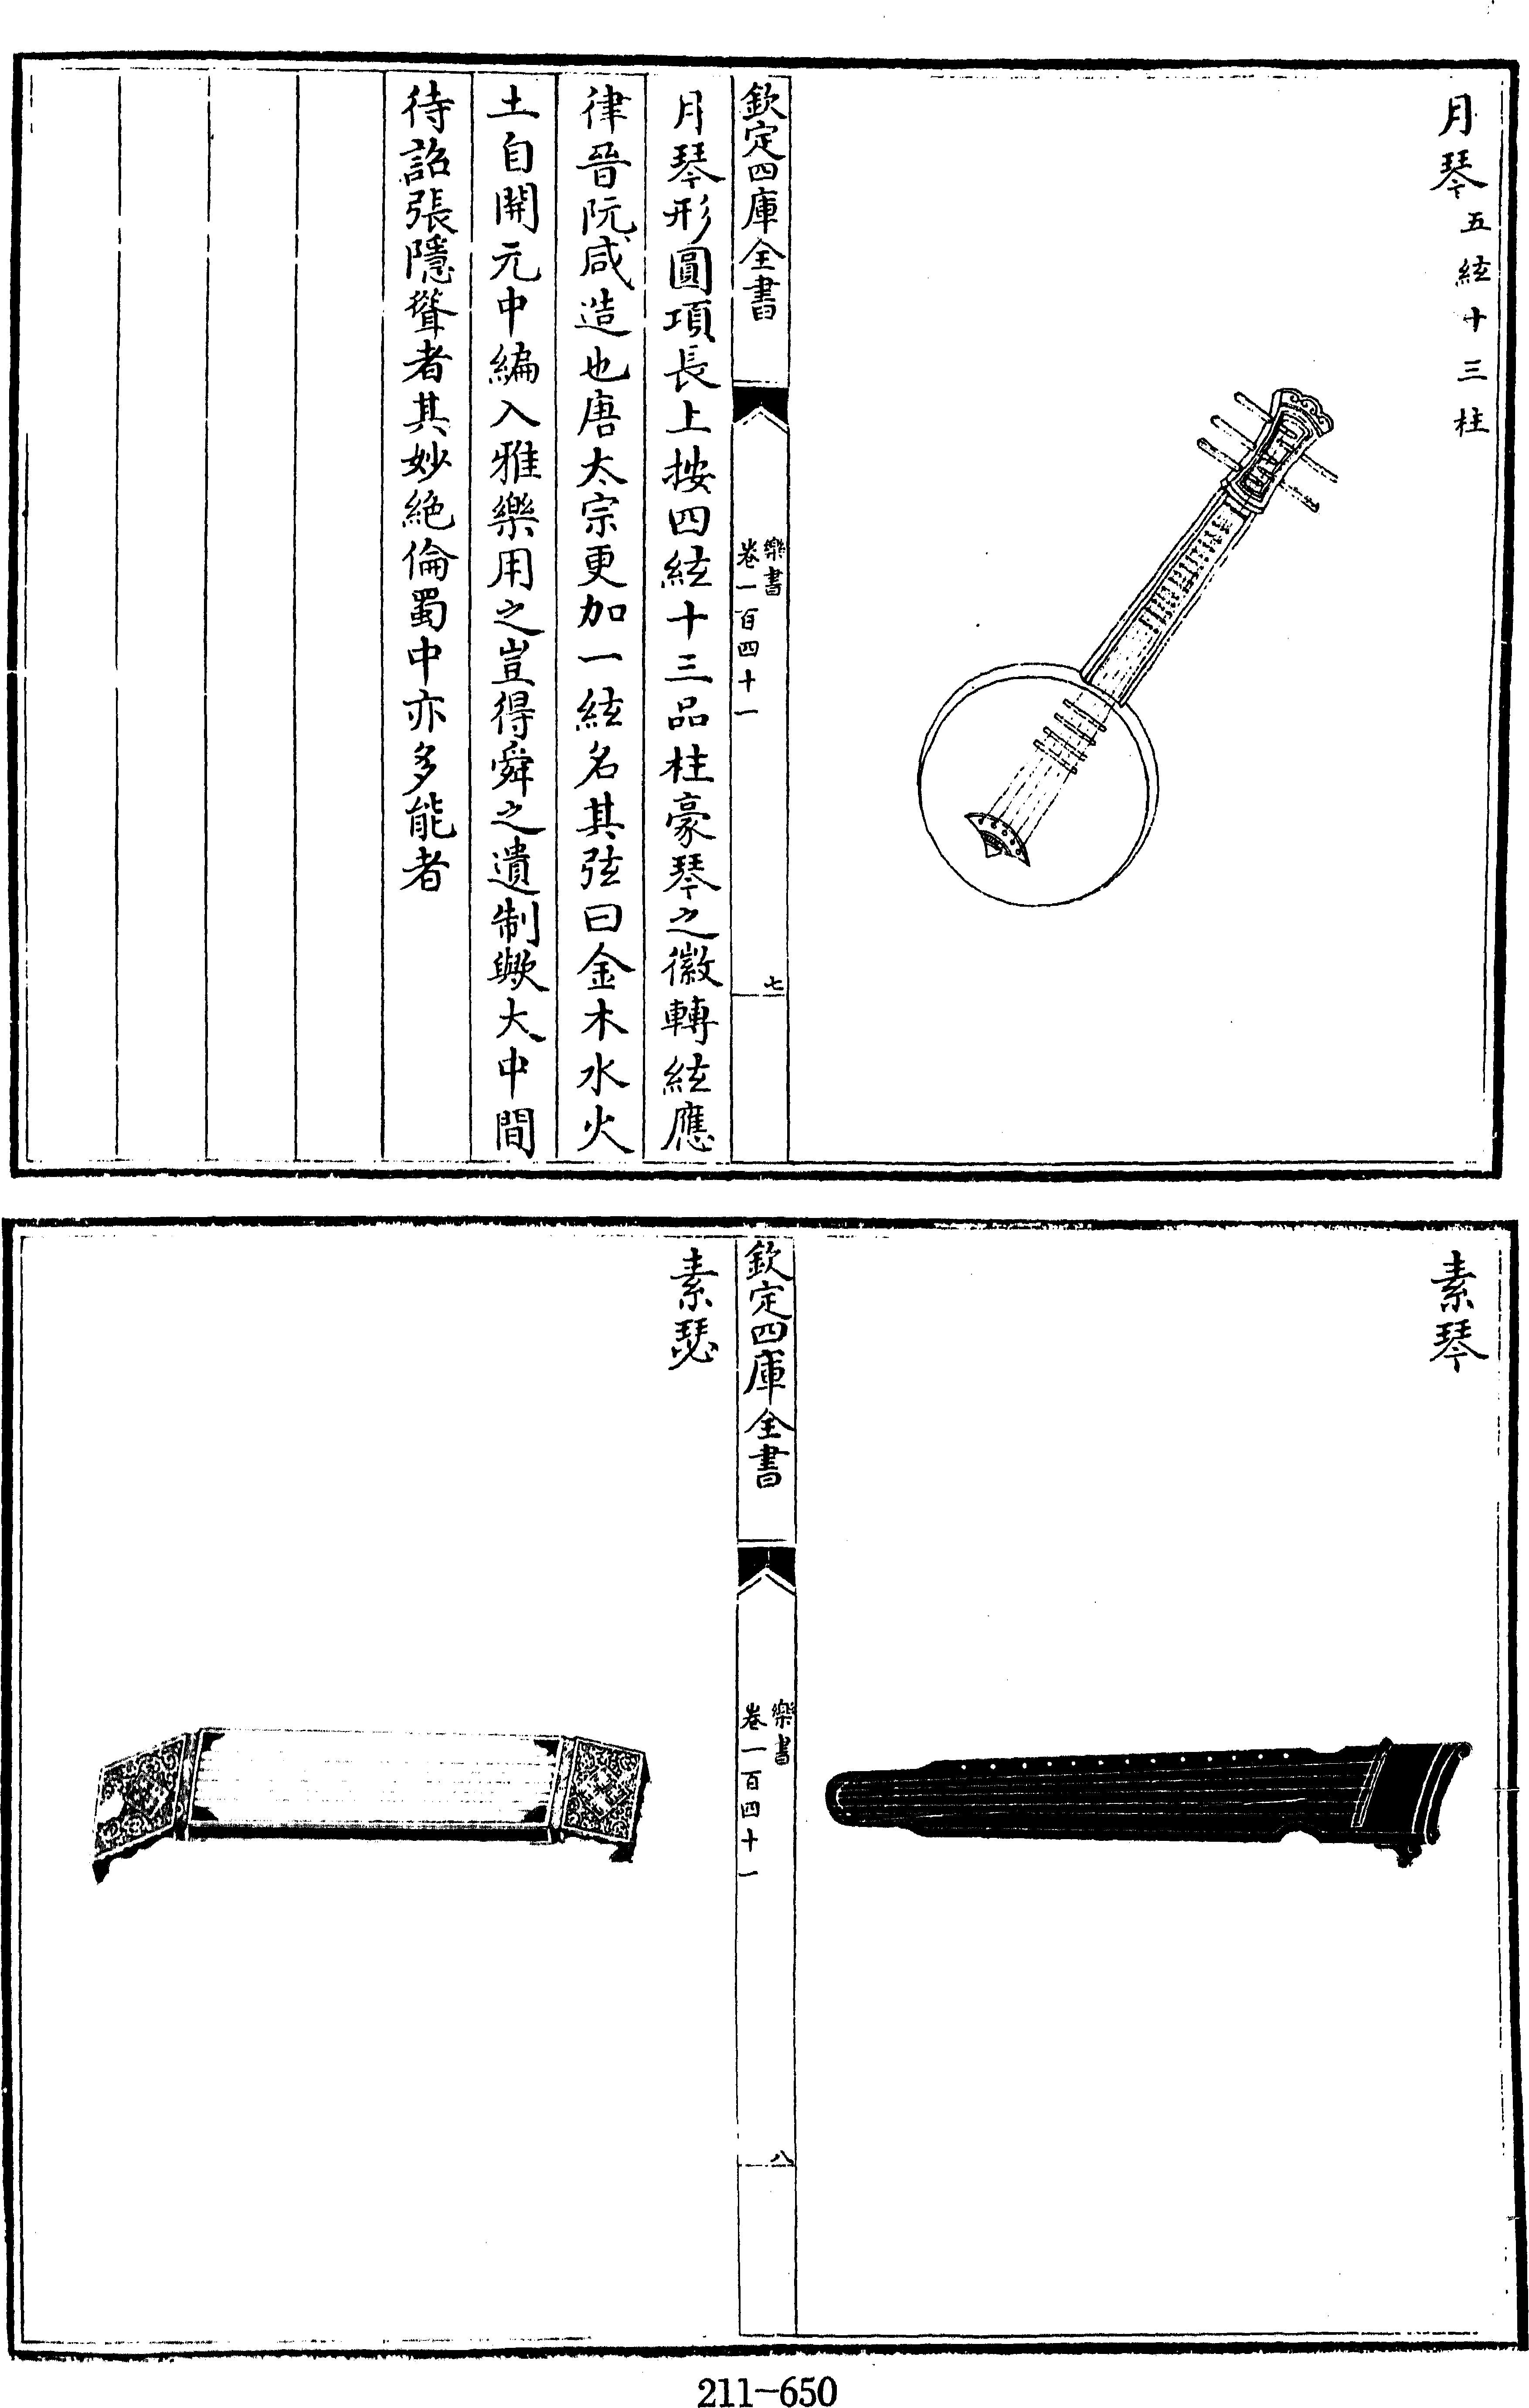 月琴五絃十三柱
欽定四庫全書
樂書
卷一百四十一
七
月琴形圓項長上按四絃十三品柱豪琴之徽轉絃應
律晉阮咸造也唐太宗更加一絃名其弦曰金木水火
土自開元中編入雅樂用之豈得舜之遺制歟大中間
待詔張隱聳者其妙絶倫蜀中亦多能者
素琴
欽定四庫全書
樂書
卷一百四十一
八
素瑟
211-650